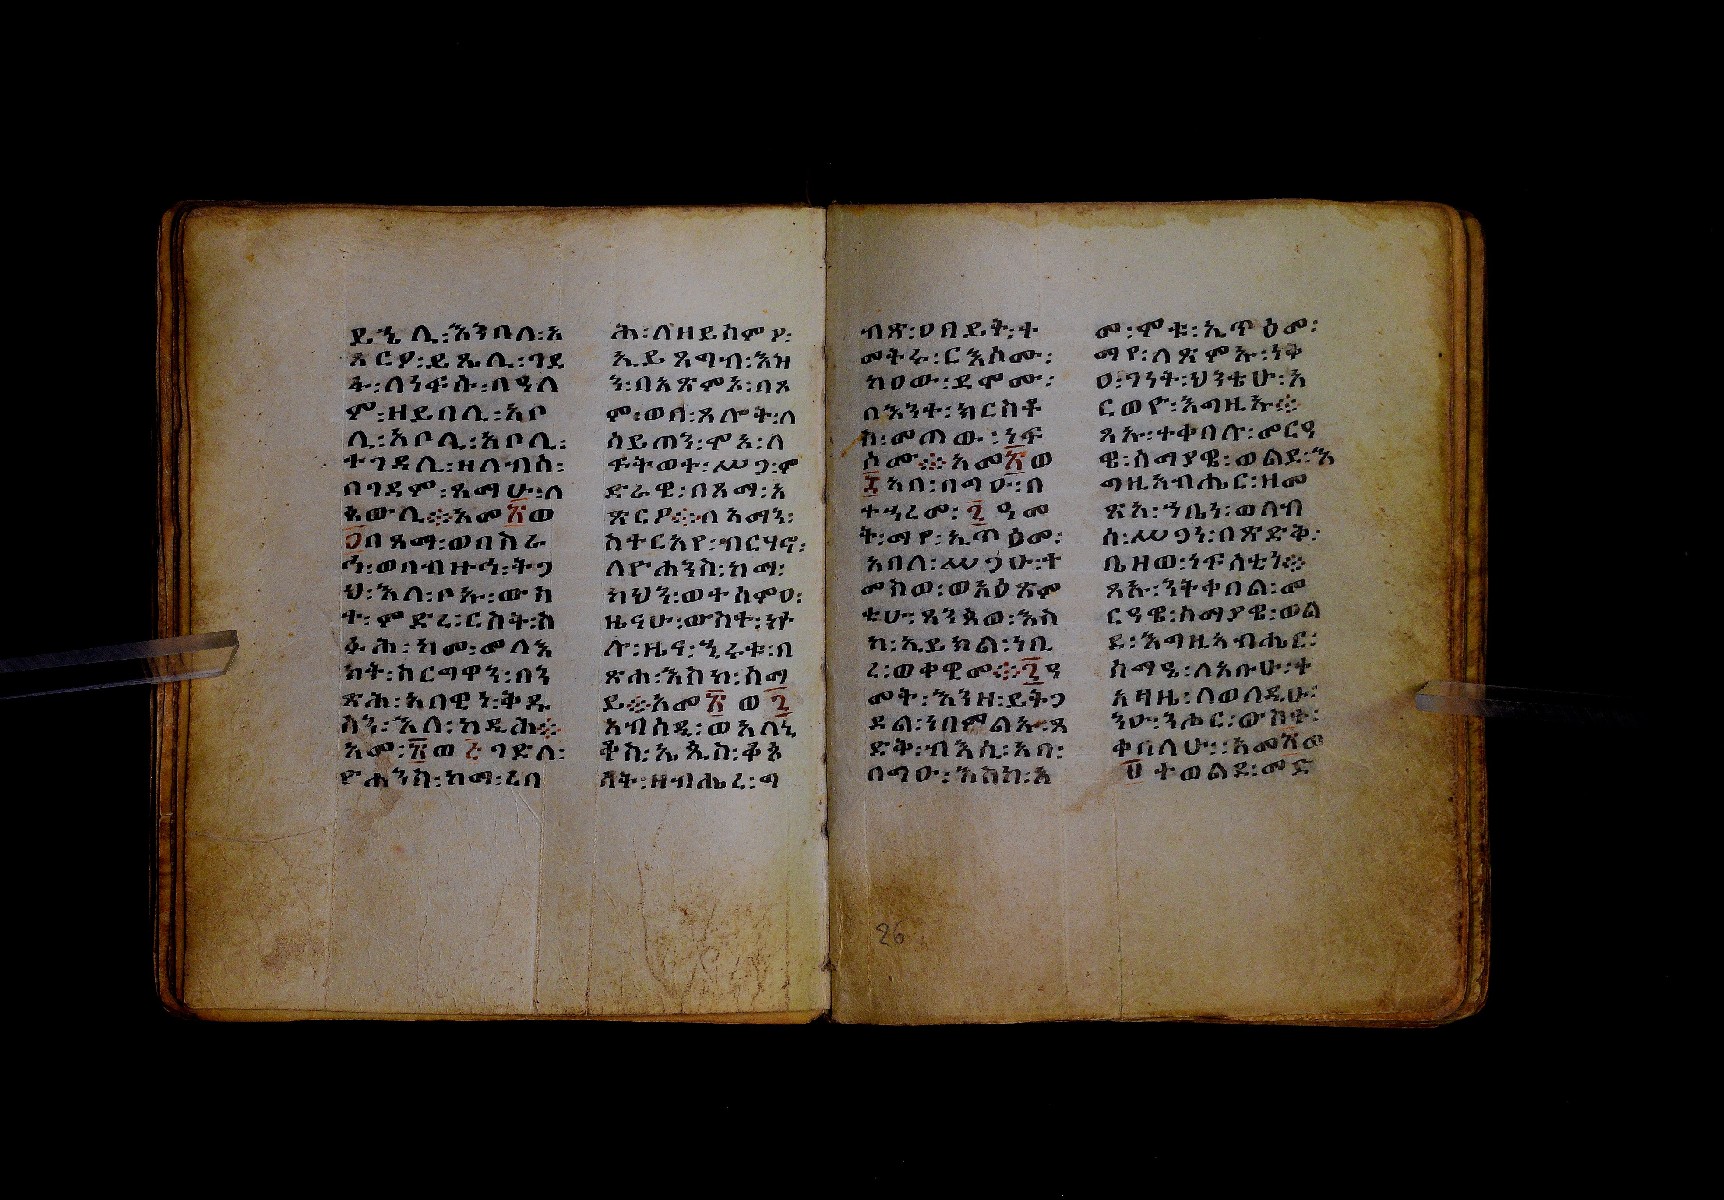 ይኒ ሊ፡እንበለ፡አ
ጽርዖ፡ይጼሊ፡ገደ
ፉ፡ለነፍሱ፡በዓለ
ም፡ዘይበሊ፡አቦ
ሊ፡አቦሊ፡አቦሊ፡
ተገዳሊ፡ዘለብሰ፡
በገዳም፡ጸማሁ፡ለ
ቄውሊ፨አመ፳ወ
፩በጻማ፡ወበስራ
ሕ፡ወበብዙኅ፡ትጋ
ህ፡እለ፡ቦኡ፡ውስ
ተ፡ምድረ፡ርስት፡ስ
ፉሕ፡ከመ፡መለእ
ክት፡ከርግዋን፡በን
ጽሕ፡አበዊነ፡ቅዱ
ሳን፡እለ፡ከዲሕ፨
አመ፡፳ወ፪ገድለ፡
ዮሐንስ፡ከማ፡ረበ
ሕ፡ለዘይሰምዖ፡
ኢይጸግብ፡እዝ
ን፡በአጽምኦ፡በጾ
ም፡ወበ፡ጸሎት፡ለ
ሰይጠን፡ሞአ፡ለ
ፋትወተ፡ሥጋ፡ም
ድራዊ፡በጻማ፡አ
ጽርዖ፨በአማን፡
አስተርአየ፡ብርሃኖ፡
ለዮሐንስ፡ከማ፡
ካህን፡ወተሰምዐ፡
ዜናሁ፡ውስተ፡ኵ
ሉ፡ዜና፡ኂሩቱ፡በ
ጽሐ፡እስከ፡ሰማ
ይ፨አመ፳ ወ ፫
አብስዲ፡ወአለኒ
ቆስ፡ኤጲስ፡ቆጶ
ሳት፡ዘብሔረ፡ግ
ብጽ፡ዐበይት፡ተ
መትሩ፡ርእሰሙ፡
ከዐው፡ደሞሙ፡
በእንተ፡ክርስቶ
ስ፡መጠው፡ነፍ
ሶሙ፨አመ፳ወ
፬አባ፡በግዑ፡በ
ተኃረመ፡ ፫ ዓመ
ት፡ማየ፡ኢጥዕመ፡
አበለ፡ሥጋሁ፡ተ
መስወ፡ወአዕጽም
ቲሁ፡ጻንጰወ፡እስ
ከ፡ኢይክል፡ነቢ
ረ፡ወቀዊመ፨፫ዓ
መት፡እንዘ፡ይትጋ
ደል፡ነበምልኡ፡ጻ
ድቅ፡ብእሲ፡አባ፡
በግዑ፡እስከ፡አ
መ፡ሞቱ፡ኢጥዕመ፡
ማየ፡ለጽምኡ፡ነቅ
ዐ፡ገነት፡ህንቴሁ፡አ
ርወዮ፡እግዚኡ፨
ጸኡ፡ተቀበሉ፡መርዓ
ዊ፡ሰማያዊ፡ወልደ፡እ
ግዚአብሔር፡ዘመ
ጽአ፡ኀቤነ፡ወለብ
ሰ፡ሥጋነ፡በጽድቅ፡
ቤዘወ፡ነፍሳቲነ፨
ጸኡ፡ንትቀበል፡መ
ርዓዊ፡ሰማያዊ፡ወል
ደ፡እግዚአብሔር፡
ሰማዔ፡ለአቡሁ፡ተ
አዛዜ፡ለወላዲሁ፡
ንዑ፡ንሑር፡ውስተ፡
ቀበላሁ፡፡አመ፳ወ
፭ ተወልደ፡መድ
26